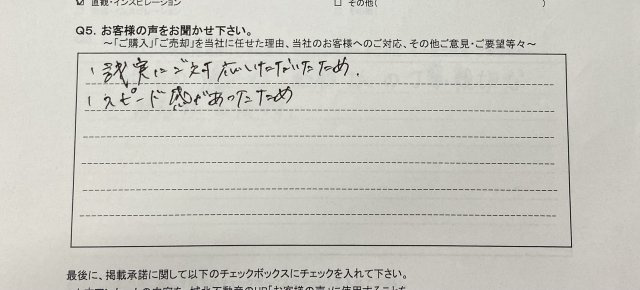 ☑ 直観・インスピレーション □ その他( )
Q5. お客様の声をお聞かせ下さい。
～「ご購入」「ご売却」を当社に任せた理由、当社のお客様へのご対応、その他ご意見・ご要望等々～
・誠実にご対応いただいたため.
・スピード感があったため
最後に、掲載承諾に関して以下のチェックボックスにチェックを入れて下さい。
城北不動産のHP「お客様の声」に使用することを